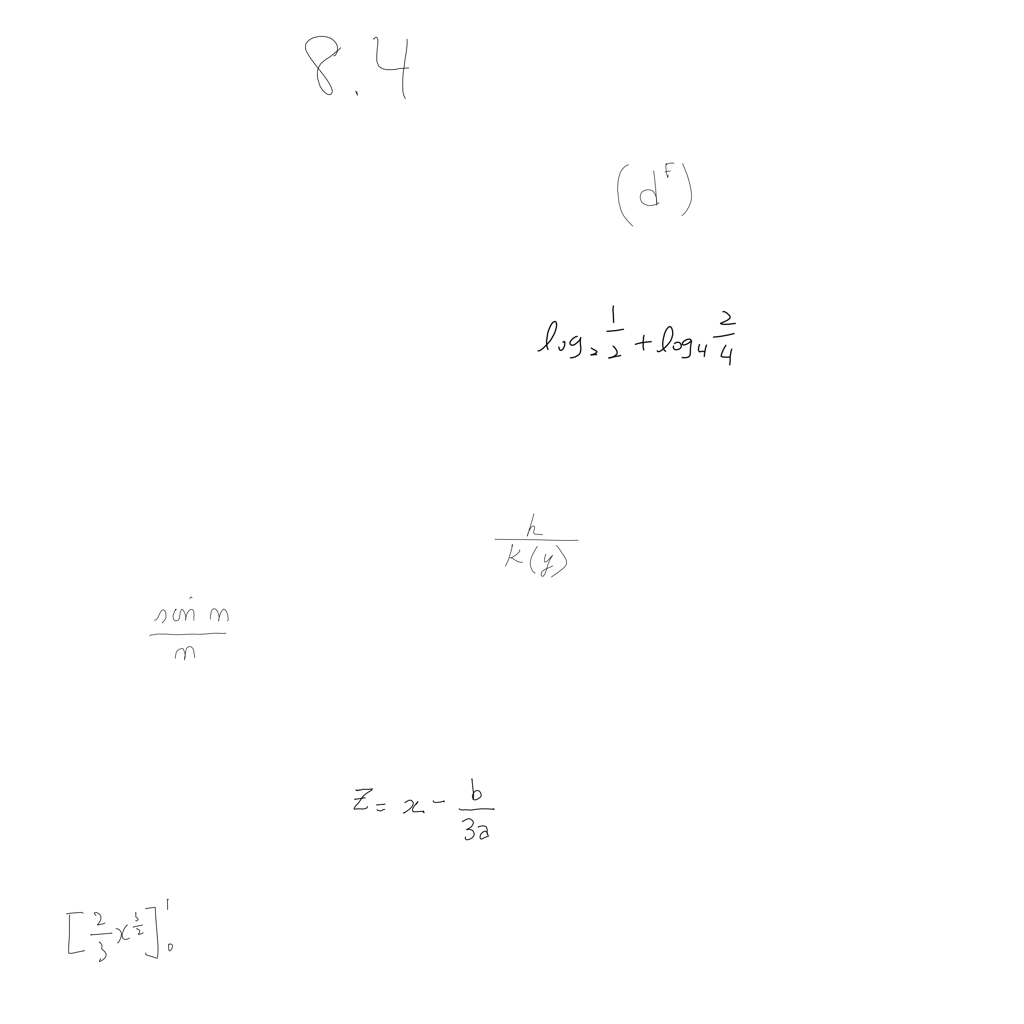 8.4
(d^F)
log_2 1/2 + log_4 2/4
h/k(y)
sin n/n
z = x - b/3a
[2/3 x^{3/2}]_0^1